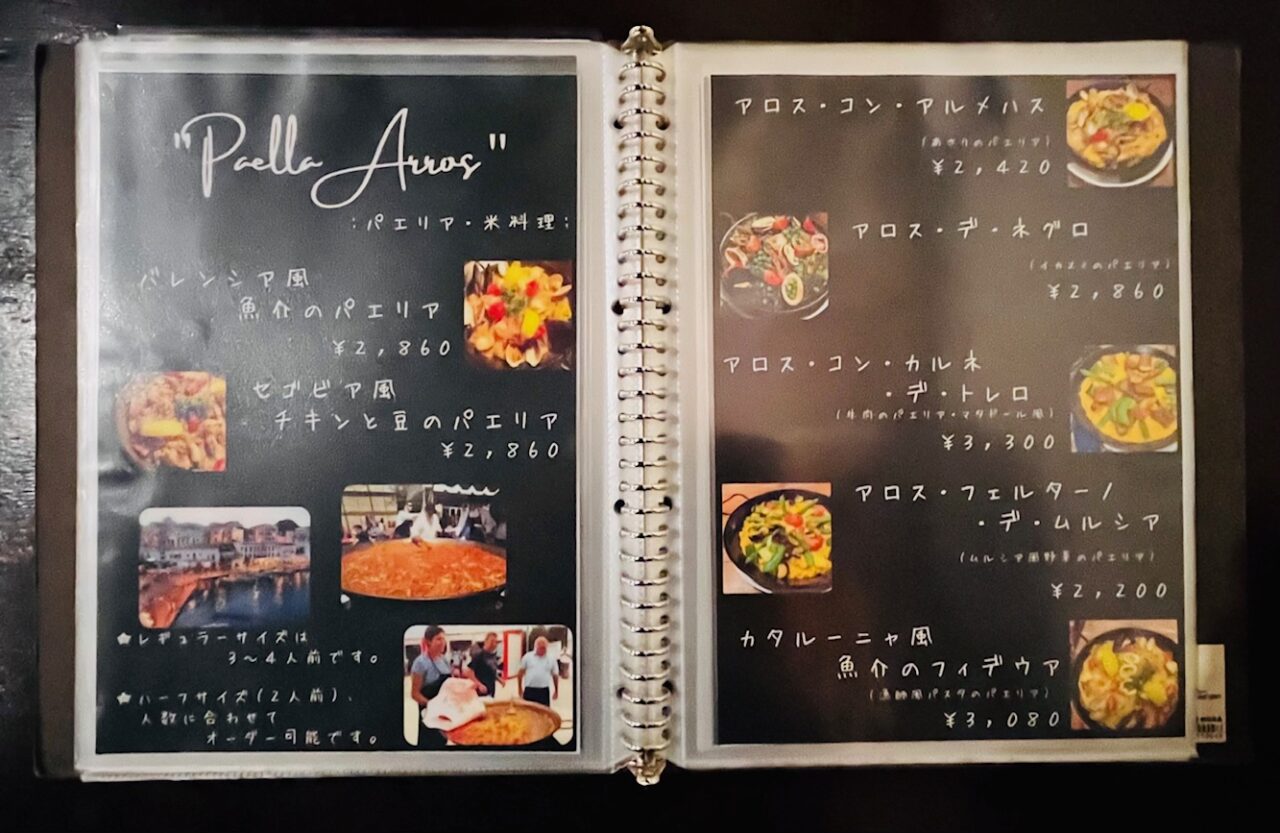 "Paella Arros"
:パエリア・米料理:
バレンシア風
魚介のパエリア
¥2,860
セゴビア風
チキンと豆のパエリア
¥2,860
★レギュラーサイズは
3〜4人前です。
★ハーフサイズ(2人前)、
人数に合わせて
オーダー可能です。
アロス・コン・アルメハス
(あさりのパエリア)
¥2,420
アロス・デ・ネグロ
(イカスミのパエリア)
¥2,860
アロス・コン・カルネ
・デ・トレロ
(牛肉のパエリア・マタドール風)
¥3,300
アロス・フェルターノ
・デ・ムルシア
(ムルシア風野菜のパエリア)
¥2,200
カタルーニャ風
魚介のフィデウア
(漁師風パスタのパエリア)
¥3,080